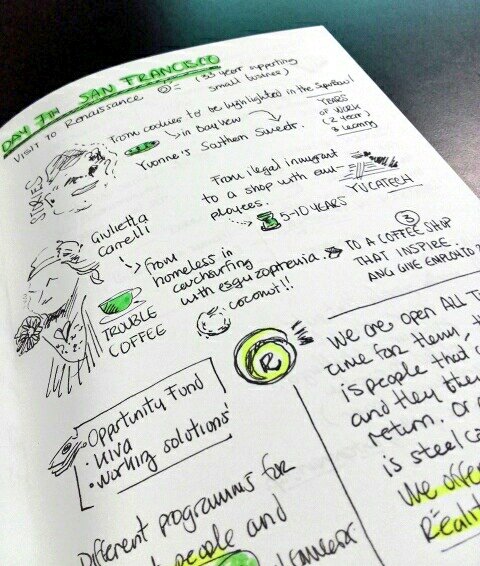 DAY 7TH SAN FRANCISCO
VISIT TO Renaissance = (33 year supporting
small business)
STORIES
From cookies to be highlighted in the SuperBowl
in Bay view
Yvonne's Southern Sweets.
YEARS
OF WORK
(2 year)
3 learning
From ilegal inmigrant
to a shop with em-
ployees.
YUCATECH
5-10 YEARS
Giulietta
Carrelli
From
homeless in
couchsurfing
with esquizophrenia.
TO A COFFEE SHOP
THAT INSPIRE
AND GIVE EMPLOY TO
3
TROUBLE
COFFEE
coconut!!
R
· Opportunity Fund
· Kiva
· Working solutions
Different programms for
people and
We are open ALL T
time for them,
is people that
and they
return. Or
is
We offer
Reality